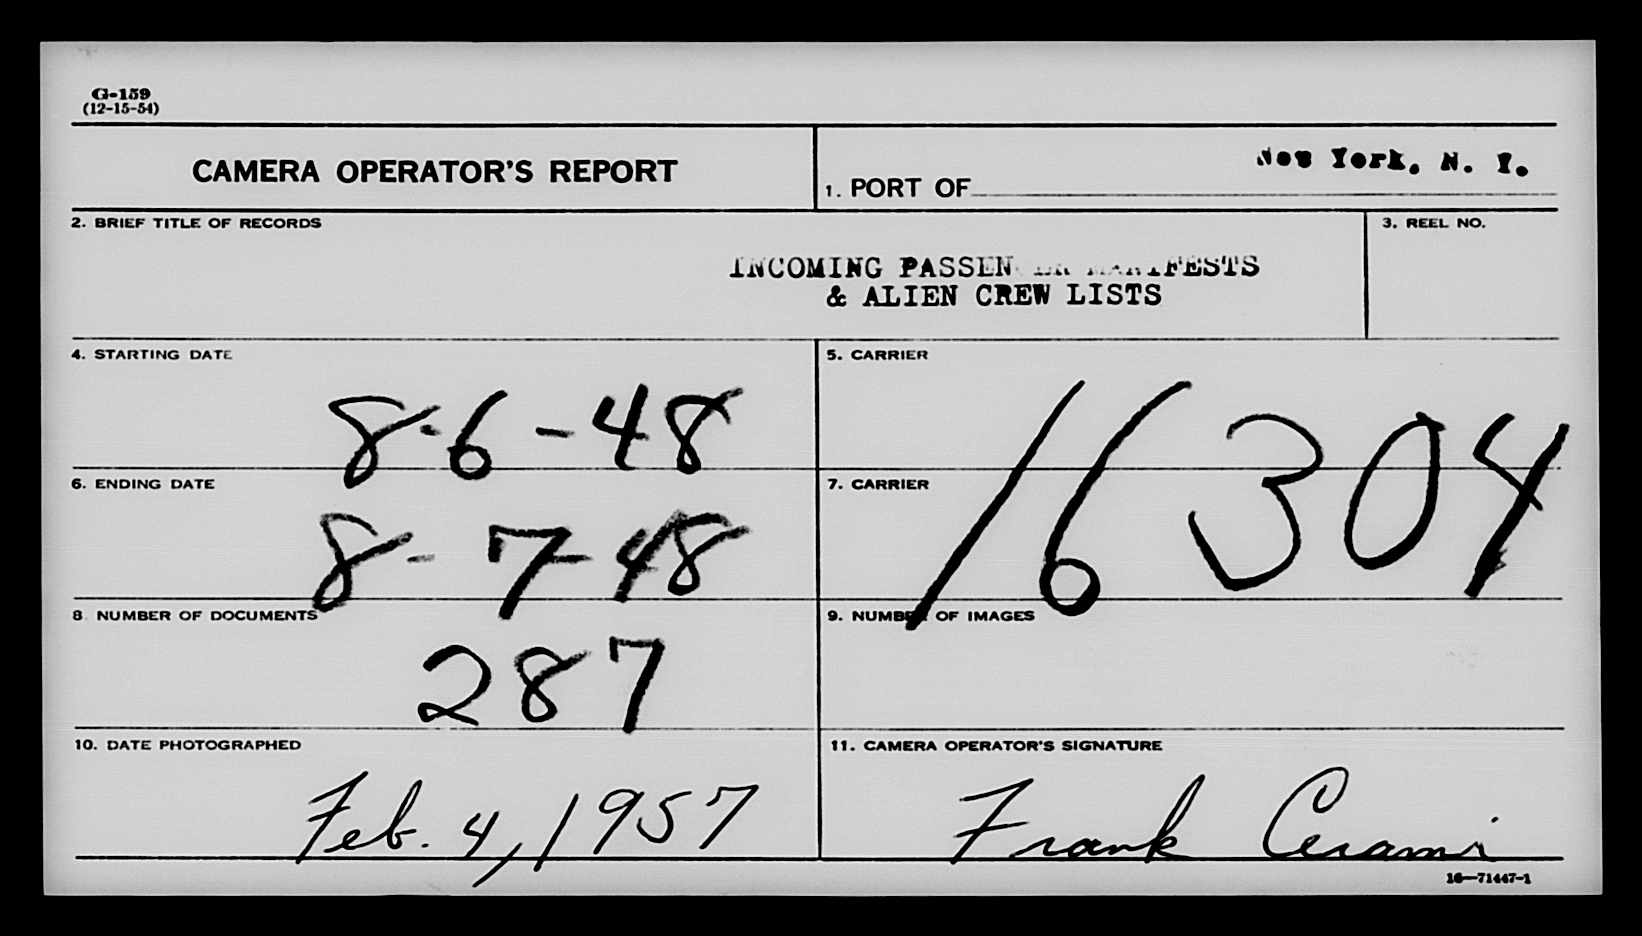 G-159
(12-15-54)
CAMERA OPERATOR'S REPORT
1. PORT OF New York, N. Y.
2. BRIEF TITLE OF RECORDS
INCOMING PASSENGER MANIFESTS
& ALIEN CREW LISTS
3. REEL NO.
4. STARTING DATE
8-6-48
5. CARRIER
16304
6. ENDING DATE
8-7-48
7. CARRIER
8. NUMBER OF DOCUMENTS
287
9. NUMBER OF IMAGES
10. DATE PHOTOGRAPHED
Feb. 4, 1957
11. CAMERA OPERATOR'S SIGNATURE
Frank Cerami
16—71447-1